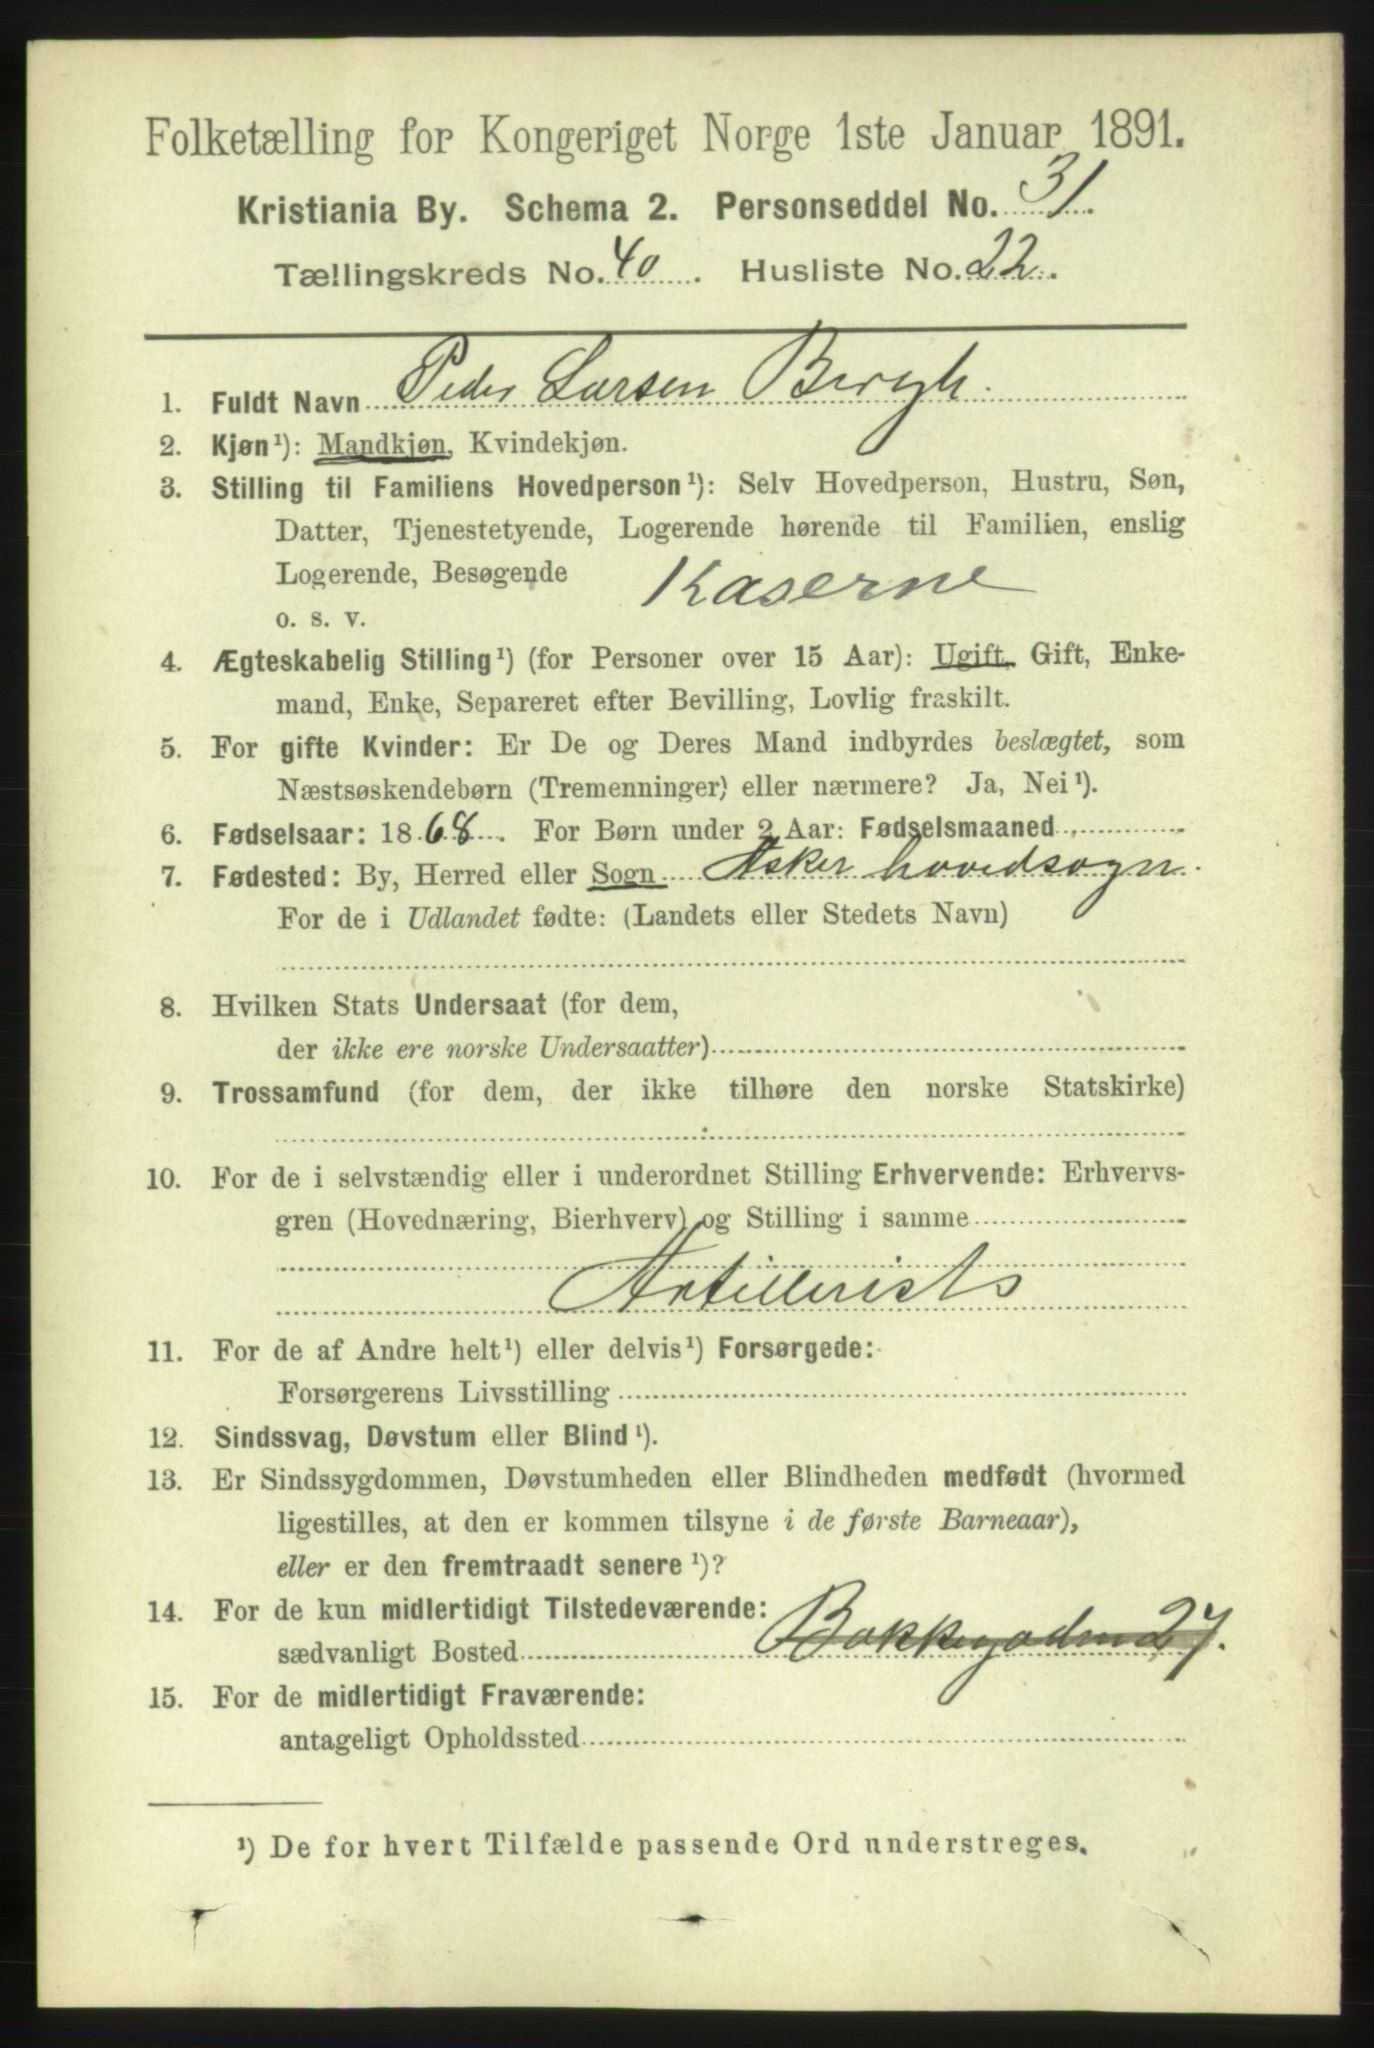 Folketælling for Kongeriget Norge 1ste Januar 1891.
Kristiania By. Schema 2. Personseddel No. 31.
Tællingskreds No. 40. Husliste No. 22.
1. Fuldt Navn Peder Larsen Bergh.
2. Kjøn¹): Mandkjøn, Kvindekjøn.
3. Stilling til Familiens Hovedperson¹): Selv Hovedperson, Hustru, Søn,
Datter, Tjenestetyende, Logerende hørende til Familien, enslig
Logerende, Besøgende Kaserne
o. s. v.
4. Ægteskabelig Stilling¹) (for Personer over 15 Aar): Ugift, Gift, Enke-
mand, Enke, Separeret efter Bevilling, Lovlig fraskilt.
5. For gifte Kvinder: Er De og Deres Mand indbyrdes beslægtet, som
Næstsøskendebørn (Tremenninger) eller nærmere? Ja, Nei¹).
6. Fødselsaar: 1868. For Børn under 2 Aar: Fødselsmaaned
7. Fødested: By, Herred eller Sogn Asker hovedsogn.
For de i Udlandet fødte: (Landets eller Stedets Navn)
8. Hvilken Stats Undersaat (for dem,
der ikke ere norske Undersaatter)
9. Trossamfund (for dem, der ikke tilhøre den norske Statskirke)
10. For de i selvstændig eller i underordnet Stilling Erhvervende: Erhvervs-
gren (Hovednæring, Bierhverv) og Stilling i samme
Artillerist
11. For de af Andre helt¹) eller delvis¹) Forsørgede:
Forsørgerens Livsstilling
12. Sindssvag, Døvstum eller Blind¹).
13. Er Sindssygdommen, Døvstumheden eller Blindheden medfødt (hvormed
ligestilles, at den er kommen tilsyne i de første Barneaar),
eller er den fremtraadt senere¹)?
14. For de kun midlertidigt Tilstedeværende:
sædvanligt Bosted Bakkegaden 27.
15. For de midlertidigt Fraværende:
antageligt Opholdssted
¹) De for hvert Tilfælde passende Ord understreges.